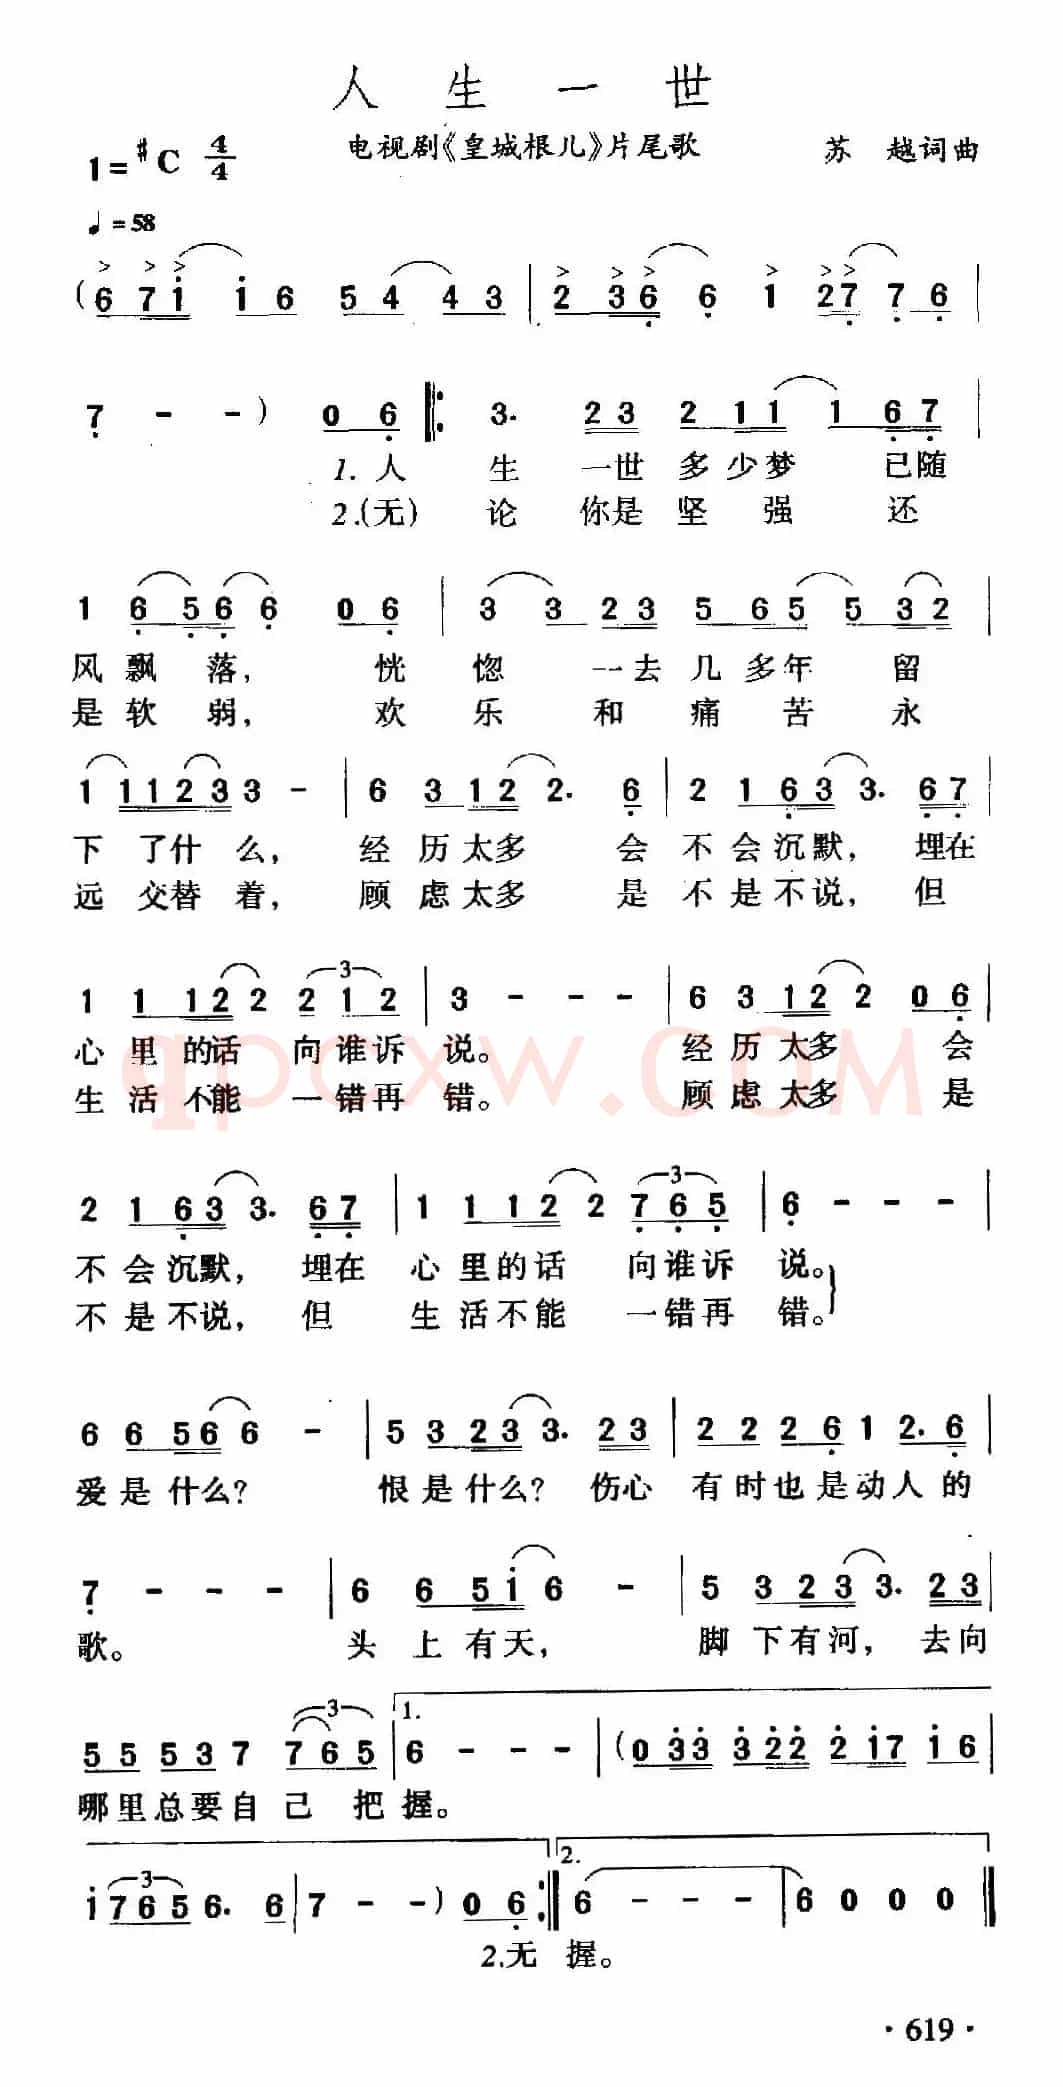 人生一世
1=#C 4/4 电视剧《皇城根儿》片尾歌 苏 越词曲
♩=58
(6 7 i i 6 5 4 4 3 | 2 3 6 6 1 2 7 7 6 |
7 - - ) 0 6 |: 3. 2 3 2 1 1 1 6 7 |
1.人 生 一世 多少梦 已随
2.(无) 论 你是 坚 强 还
1 6 5 6 6 0 6 | 3 3 2 3 5 6 5 5 3 2 |
风飘 落, 恍 惚 一去几多年 留
是软 弱, 欢 乐 和 痛 苦 永
1 1 1 2 3 3 - | 6 3 1 2 2. 6 | 2 1 6 3 3. 6 7 |
下 了什 么, 经 历太多 会 不会沉默, 埋在
远 交替 着, 顾 虑太多 是 不是不说, 但
1 1 1 2 2 2 1 2 | 3 - - - | 6 3 1 2 2 0 6 |
心里的话 向谁诉 说。 经历太多 会
生活不能 一错再 错。 顾虑太多 是
qpcxw.COM
2 1 6 3 3. 6 7 | 1 1 1 2 2 7 6 5 | 6 - - -
不会沉默, 埋在 心里的话 向谁诉 说。
不是不说, 但 生活不能 一错再 错。
6 6 5 6 6 - | 5 3 2 3 3. 2 3 | 2 2 2 6 1 2. 6 |
爱是什么? 恨是什么? 伤心 有时也是动人的
7 - - - | 6 6 5 i 6 - | 5 3 2 3 3. 2 3 |
歌。 头上有天, 脚下有河, 去向
5 5 5 3 7 7 6 5 | 1. 6 - - - | (0 3 3 3 2 2 2 i 7 i 6 |
哪里总要自己 把 握。
i 7 6 5 6. 6 | 7 - - ) 0 6 :| 2. 6 - - - | 6 0 0 0 ‖
2.无 握。
· 619 ·